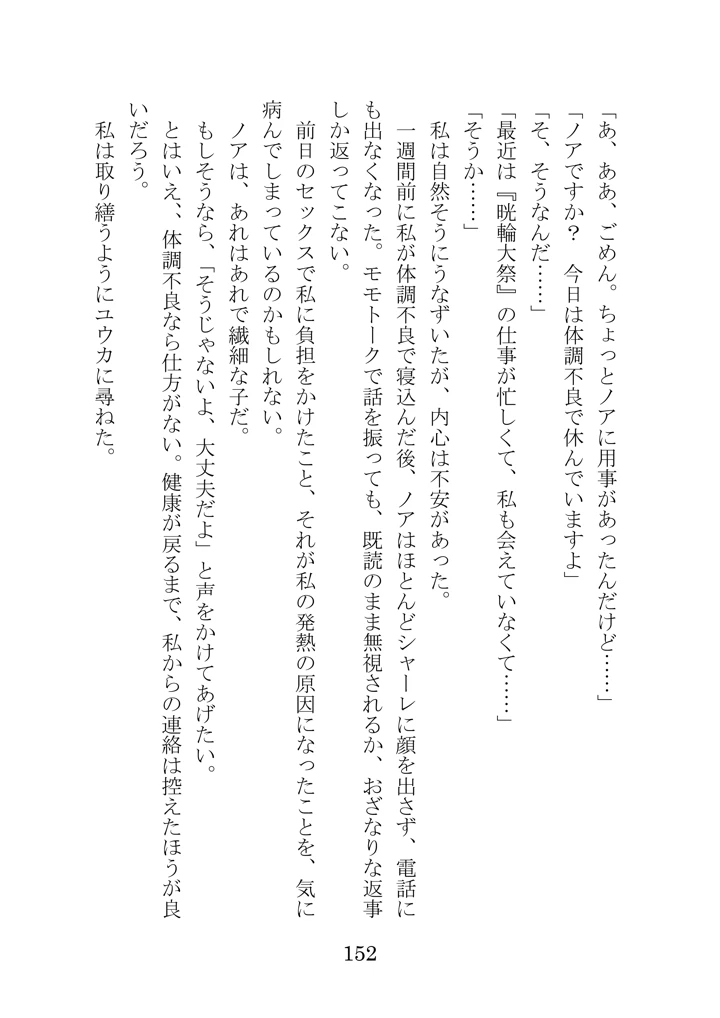 「あ、ああ、ごめん。ちょっとノアに用事があったんだけど……」
「ノアですか？　今日は体調不良で休んでいますよ」
「そ、そうなんだ……」
「最近は『晄輪大祭』の仕事が忙しくて、私も会えていなくて……」
「そうか……」
　私は自然そうにうなずいたが、内心は不安があった。
　一週間前に私が体調不良で寝込んだ後、ノアはほとんどシャーレに顔を出さず、電話に
も出なくなった。モモトークで話を振っても、既読のまま無視されるか、おざなりな返事
しか返ってこない。
　前日のセックスで私に負担をかけたこと、それが私の発熱の原因になったことを、気に
病んでしまっているのかもしれない。
　ノアは、あれはあれで繊細な子だ。
　もしそうなら、「そうじゃないよ、大丈夫だよ」と声をかけてあげたい。
　とはいえ、、体調不良なら仕方がない。健康が戻るまで、私からの連絡は控えたほうが良
いだろう。
　私は取り繕うようにユウカに尋ねた。
152